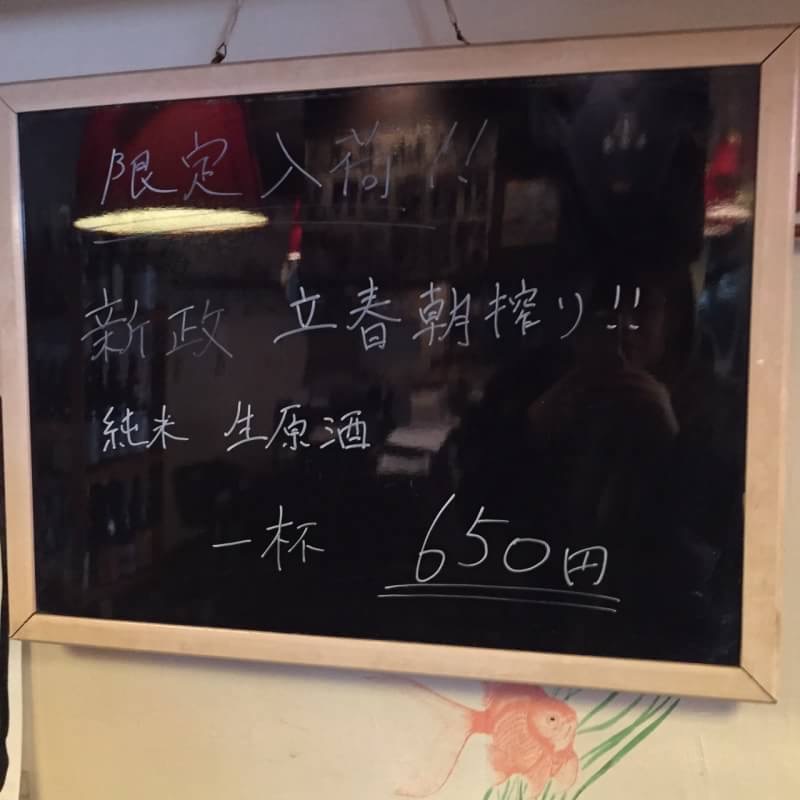 限定入荷!!
新政 立春朝搾り!!
純米 生原酒
一杯 650円